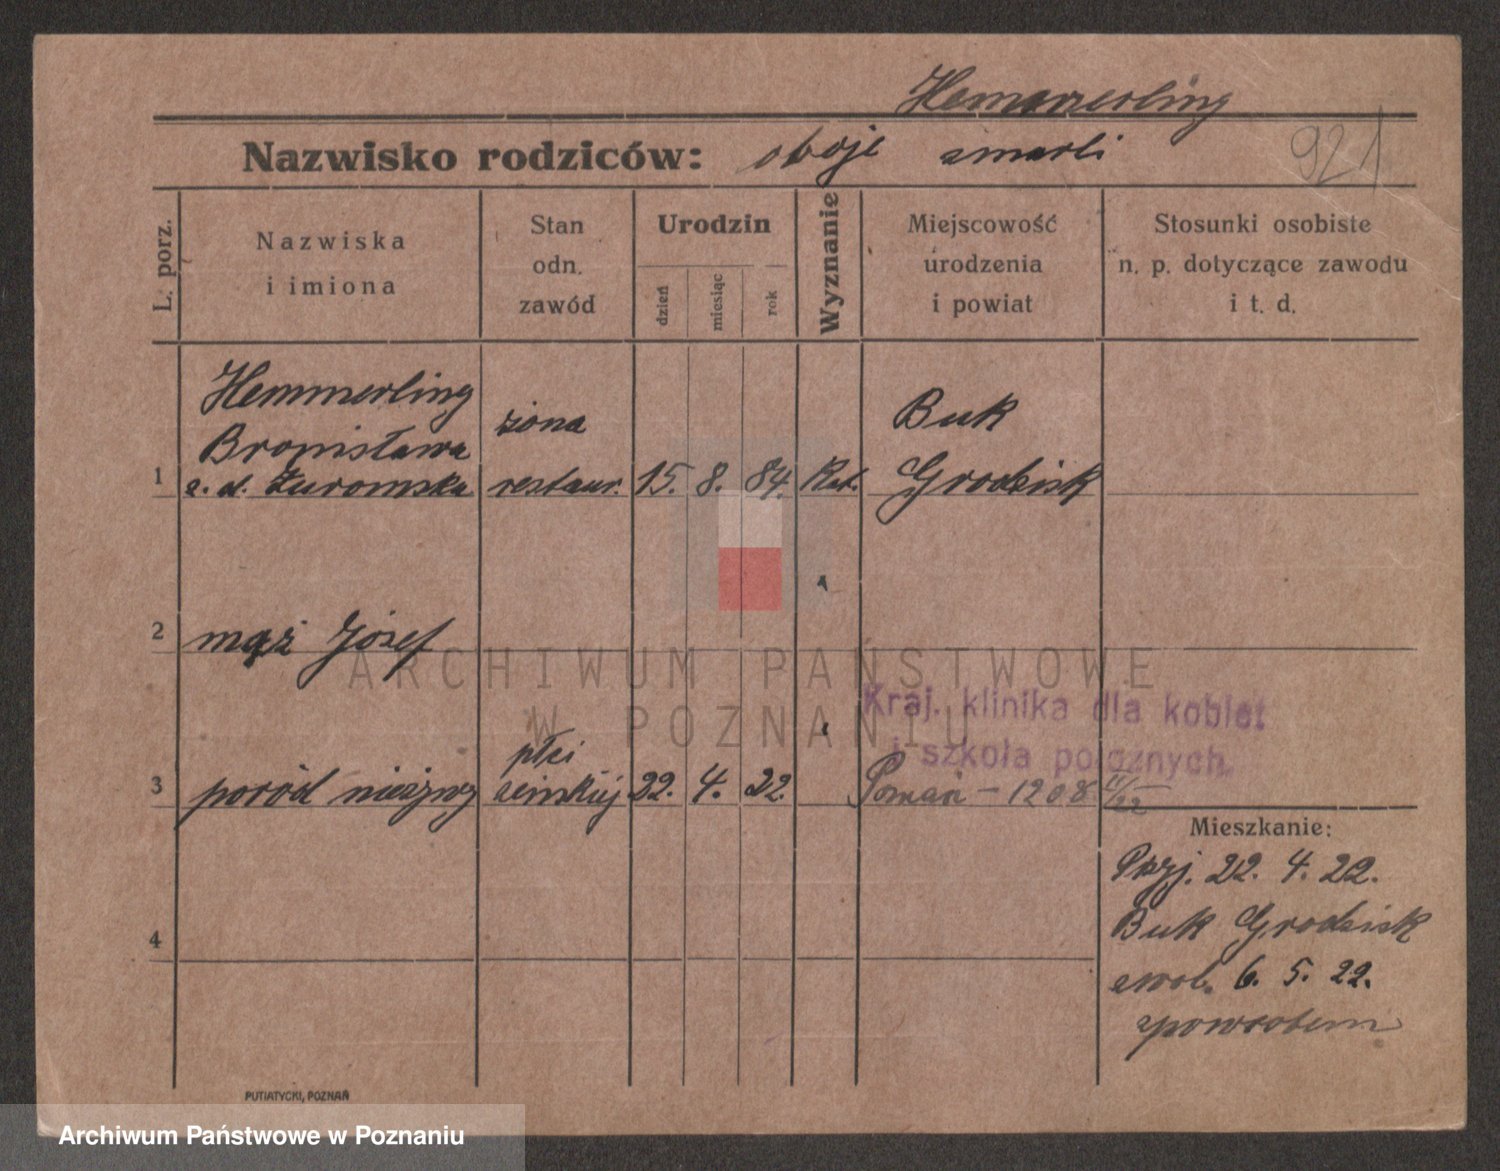 Hemmerling
Nazwisko rodziców: oboje zmarli
921
L. porz.
Nazwiska i imiona
Stan odn. zawód
Urodzin
dzień
miesiąc
rok
Wyznanie
Miejscowość urodzenia i powiat
Stosunki osobiste n. p. dotyczące zawodu i t. d.
Hemmerling
Bronisława
żona
Buk
1
z. d. Żuromska
restaur.
15. 8. 84.
Kat.
Grodzisk
2
mąż Józef
ARCHIWUM PAŃSTWOWE
W POZNANIU
Kraj. klinika dla kobiet
i szkoła położnych.
płci
3
poród nieżywy
żeńskiej
22. 4. 22.
Poznań - 1208
Mieszkanie:
Przj. 22. 4. 22.
Buk Grodzisk
4
zwol. 6. 5. 22.
zpowrotem
PUTIATYCKI, POZNAŃ
Archiwum Państwowe w Poznaniu